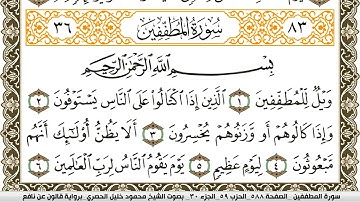 ٣٦ سُورَةُ المُطَفِّفِينَ ٨٣
بِسْمِ اللَّهِ الرَّحْمَٰنِ الرَّحِيمِ
وَيْلٌ لِّلْمُطَفِّفِينَ ١ الَّذِينَ إِذَا اكْتَالُوا عَلَى النَّاسِ يَسْتَوْفُونَ ٢
وَإِذَا كَالُوهُمْ أَو وَّزَنُوهُمْ يُخْسِرُونَ ٣ أَلَا يَظُنُّ أُوْلَٰٓئِكَ أَنَّهُم
مَّبْعُوثُونَ ٤ لِيَوْمٍ عَظِيمٍ ٥ يَوْمَ يَقُومُ النَّاسُ لِرَبِّ الْعَالَمِينَ ٦
سورة المطففين .. الصفحة ٥٨٨ .. الحزب ٥٩ .. الجزء ٣٠ .. بصوت الشيخ محمود خليل الحصري .. برواية قالون عن نافع